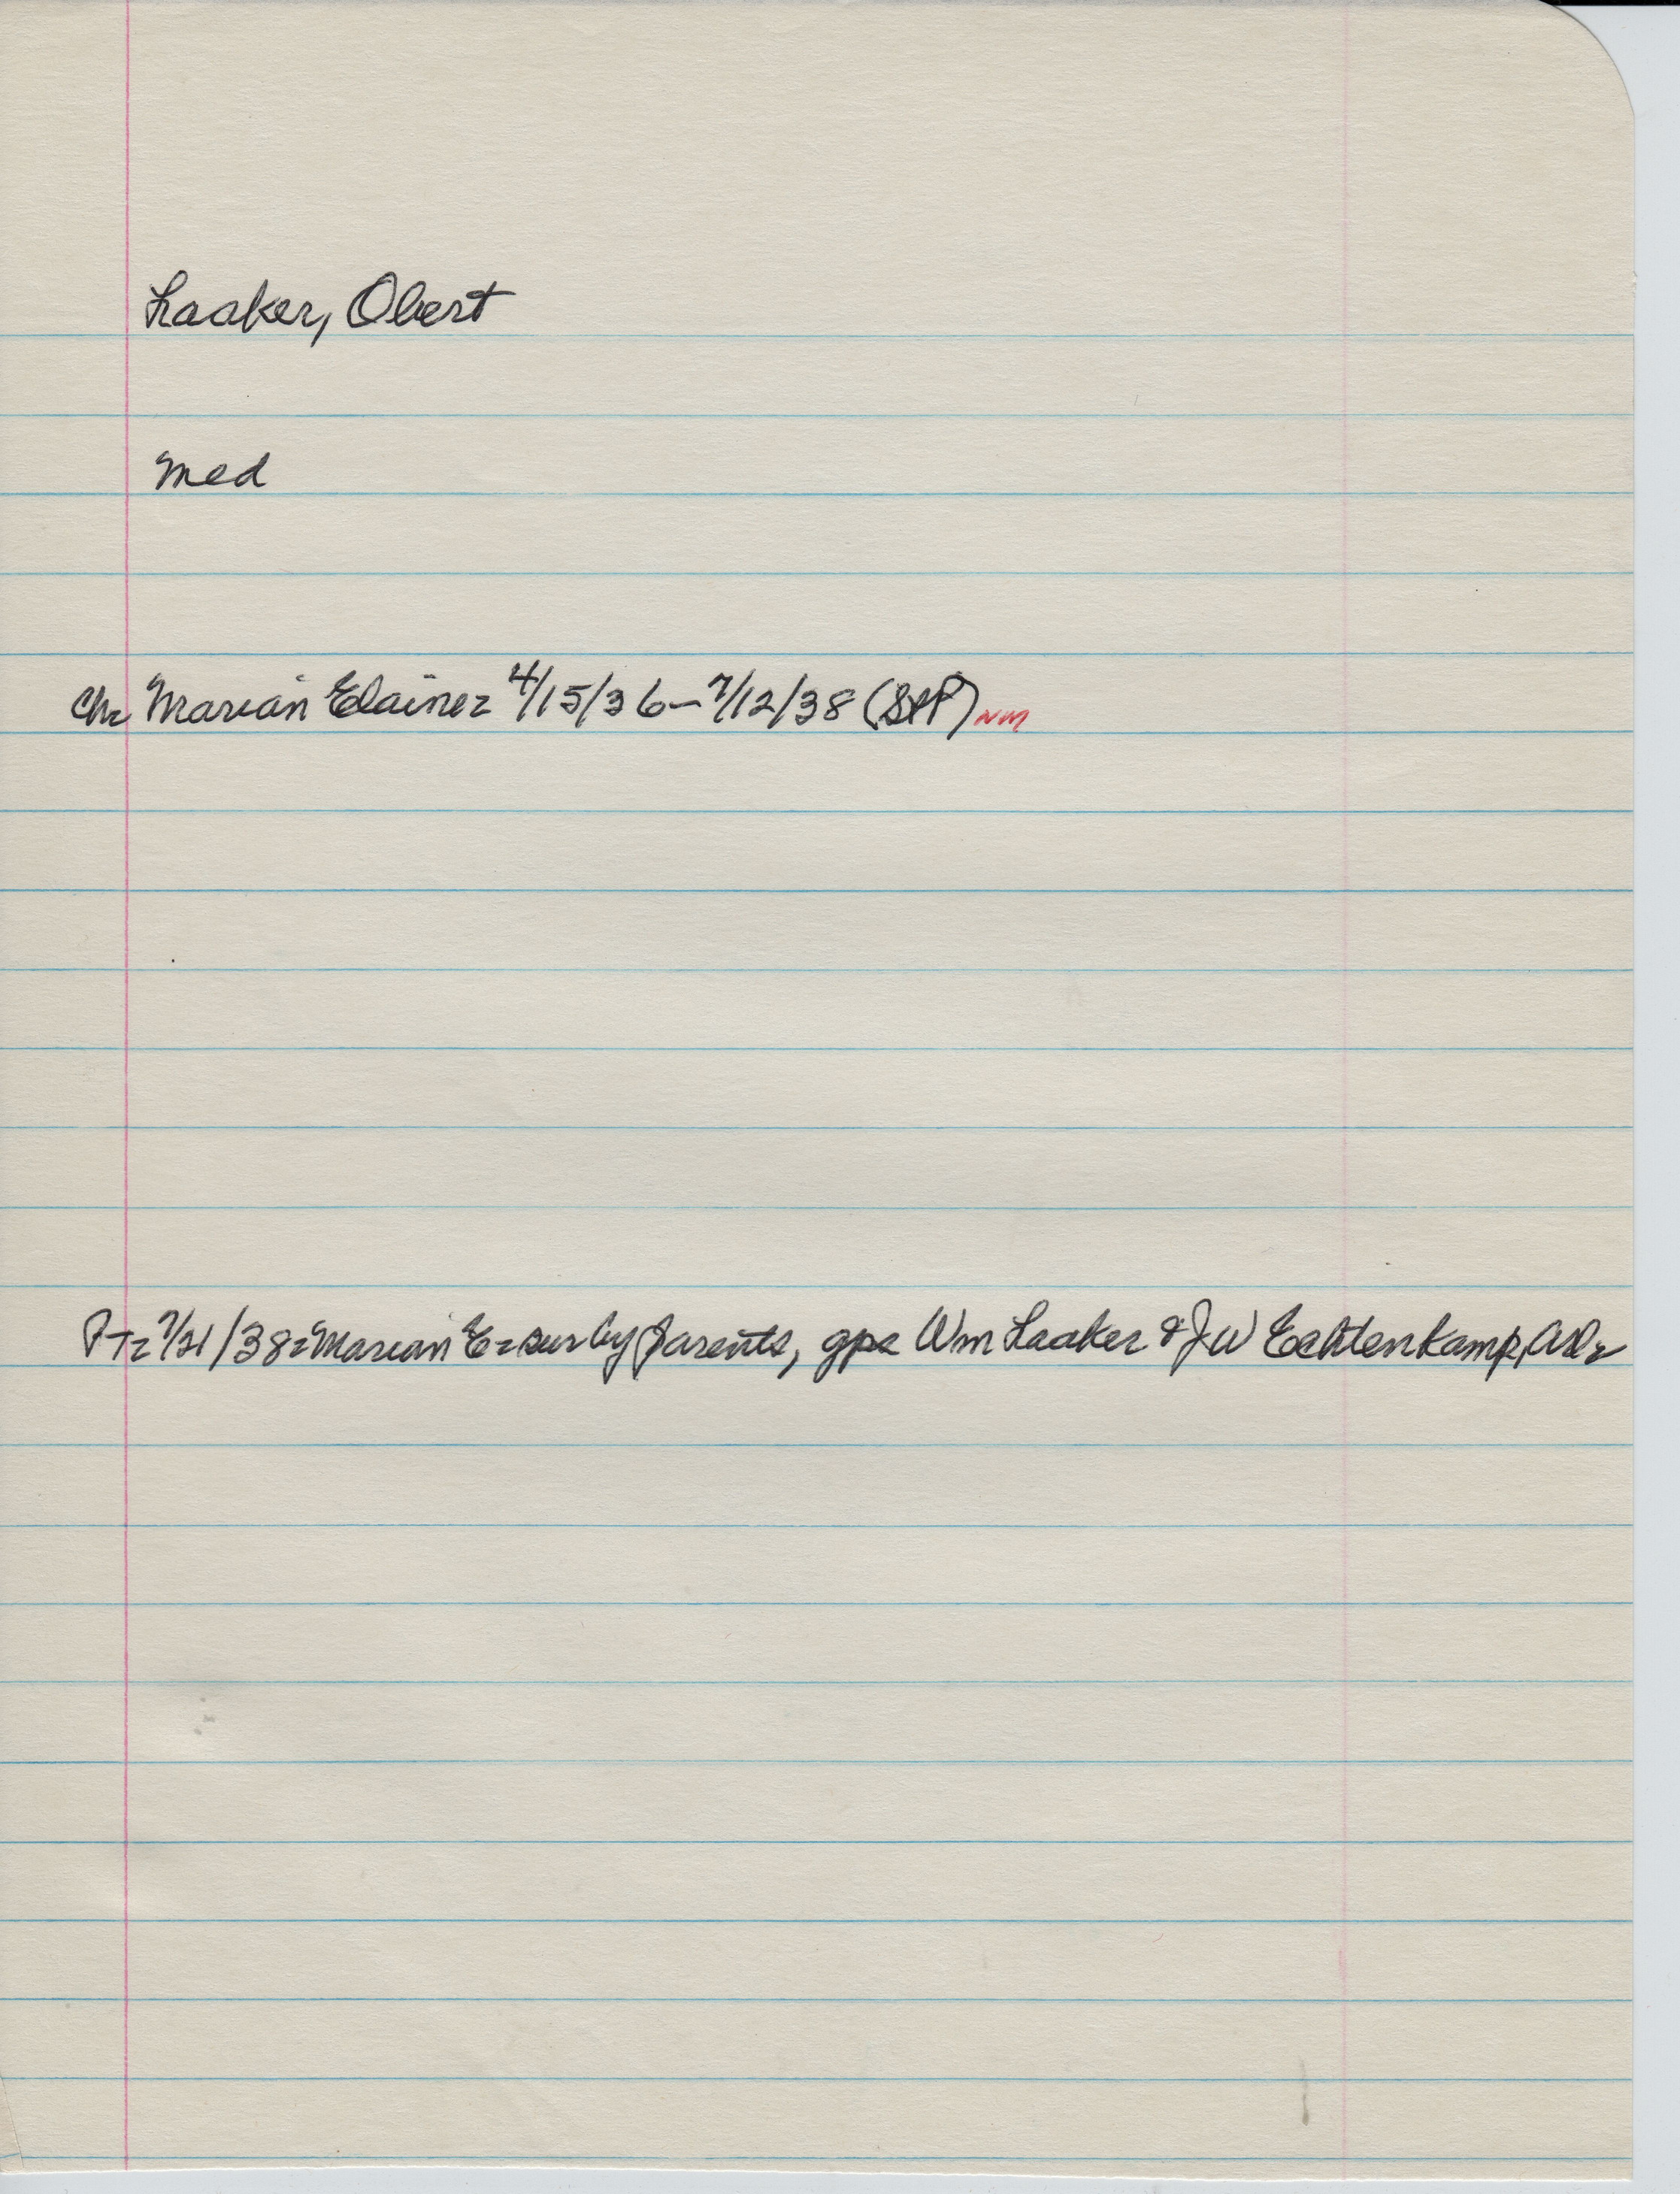 Laaker, Obert
Med
Ch- Marian Elaine- 4/15/36-7/12/38 (StP) NM
PT- 7/21/38- Marian E- sur by parents, gps Wm Laaker & J W Echtenkamp, Arl-